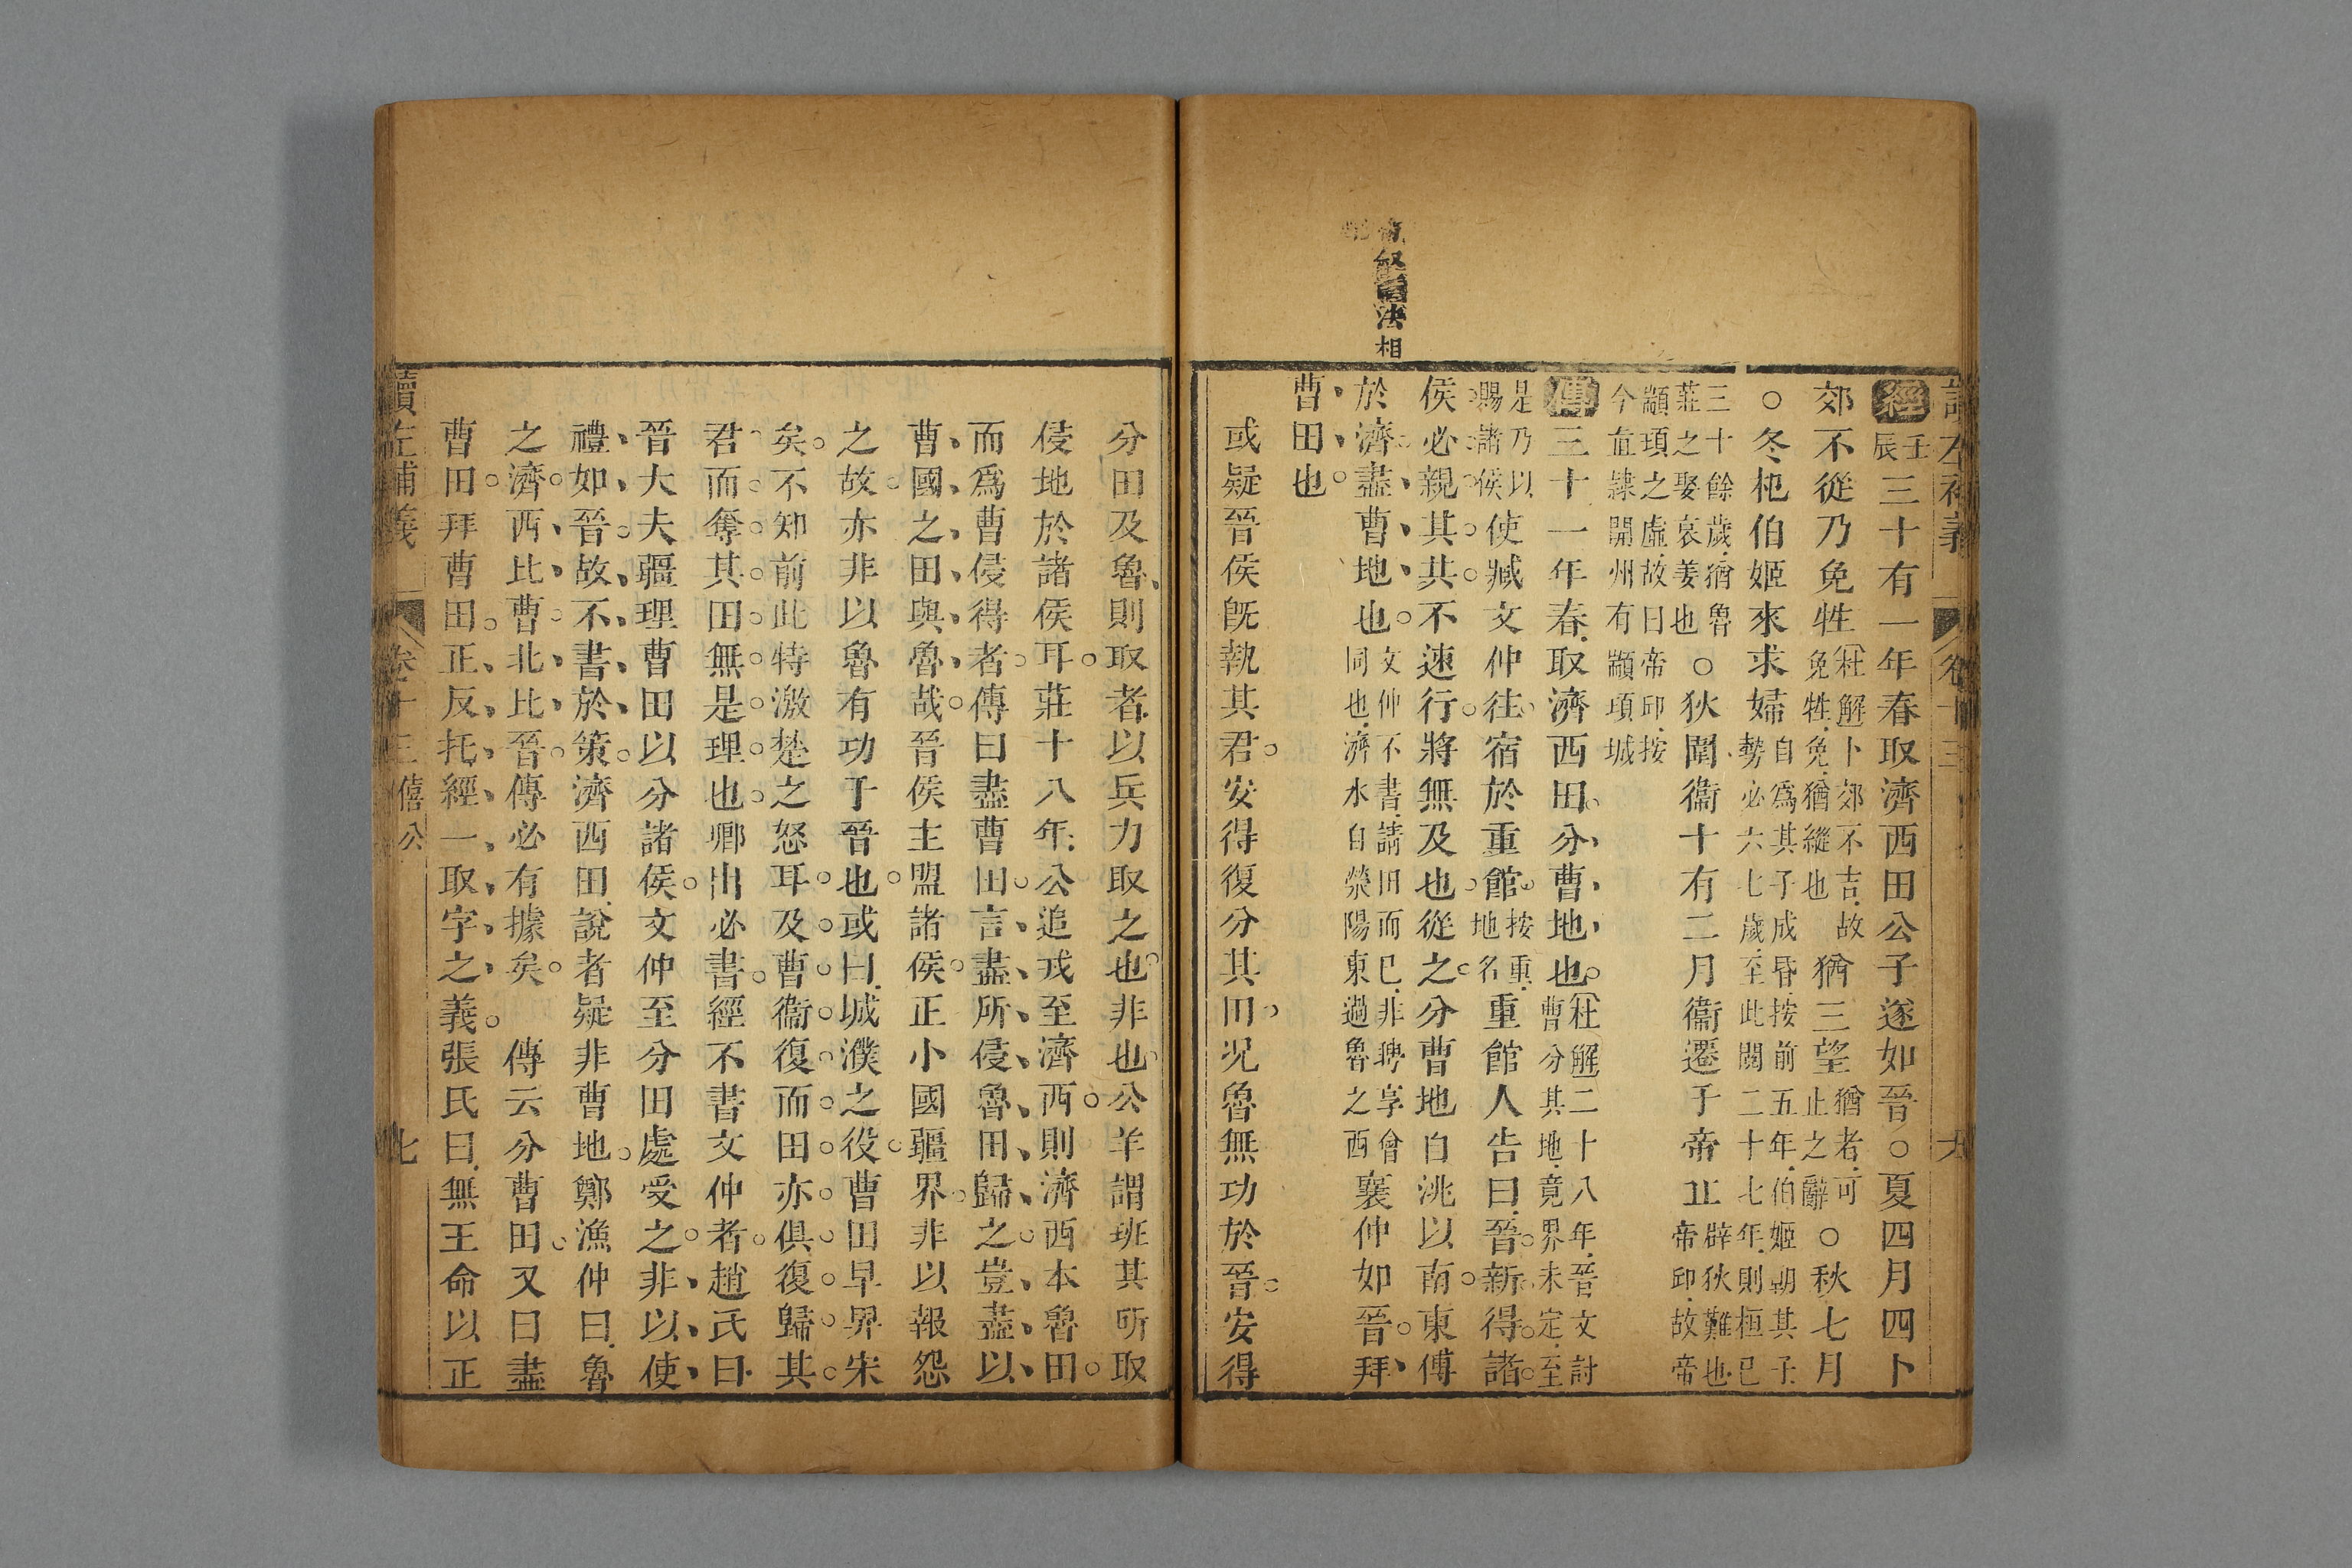 經壬辰三十有一年春取濟西田公子遂如晉○夏四月四卜
郊不從乃免牲杜解卜郊不吉故免牲免猶縱也猶三望猶者可止之辭○秋七月
○冬杞伯姬來求婦自為其子成昏按前五年伯姬朝其子勢必六七歲至此閱二十七年則桓已
三十餘歲猶魯莊之娶哀姜也○狄圍衞十有二月衞遷于帝丘辟狄難也帝邱故帝
顓頊之虛故曰帝邱按今直隷開州有顓頊城
傳三十一年春取濟西田分曹地也杜解二十八年晉文討曹分其地竟界未定至
是乃以賜諸侯使臧文仲往宿於重館按重地名重館人告曰晉新得諸
侯必親其共不速行將無及也從之分曹地自洮以南東傅
於濟盡曹地也文仲不書請田而已非聘享會同也濟水自滎陽東過魯之西襄仲如晉拜
曹田也
或疑晉侯旣執其君安得復分其田况魯無功於晉安得
敘法相
分田及魯則取者以兵力取之也非也公羊謂班其所取
侵地於諸侯耳莊十八年公追戎至濟西則濟西本魯田
而爲曹侵得者傳曰盡曹田言盡所侵魯田歸之豈盡以
曹國之田與魯哉晉侯主盟諸侯正小國疆界非以報怨
之故亦非以魯有功于晉也或曰城濮之役曹田早畀宋
矣不知前此特激楚之怒耳及曹衞復而田亦俱復歸其
君而奪其田無是理也卿出必書經不書文仲者趙氏曰
晉大夫疆理曹田以分諸侯文仲至分田處受之非以使
禮如晉故不書於策濟西田說者疑非曹地鄭漁仲曰魯
之濟西比曹北比晉傳必有據矣 傳云分曹田又曰盡
曹田拜曹田正反托經一取字之義張氏曰無王命以正
讀左補義 卷十三 僖公 七